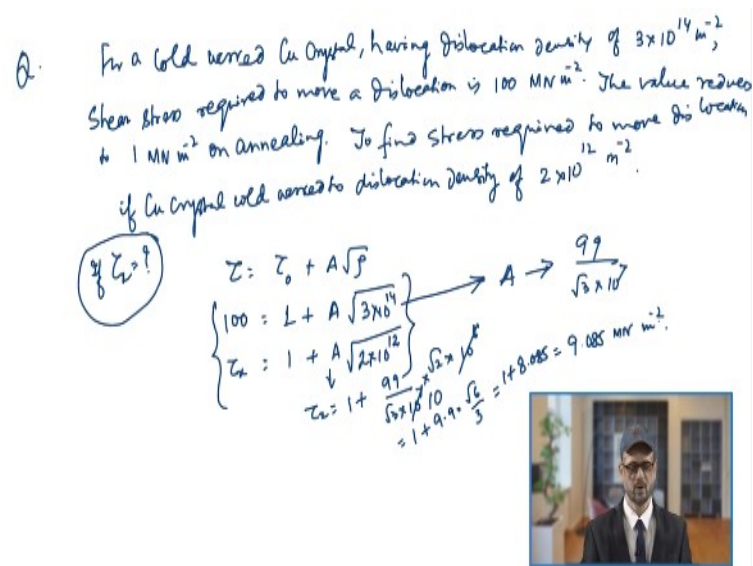 Q. For a Cold worked Cu Crystal, having dislocation density of 3×10¹⁴ m⁻²,
Shear stress required to move a dislocation is 100 MN m⁻². The value reduces
to 1 MN m⁻² on annealing. To find stress required to move dislocation
if Cu Crystal cold worked to dislocation density of 2×10¹² m⁻².
τ₂=?
τ = τ₀ + A√ρ
100 = 1 + A√3×10¹⁴ → A → 99/√3×10⁷
= 1 + A√2×10¹²
τ₂ = 1 + 99/√3×10 ×√2×10
= 1 + 9.9 × √6/3 = 1 + 8.085 = 9.085 MN m⁻².